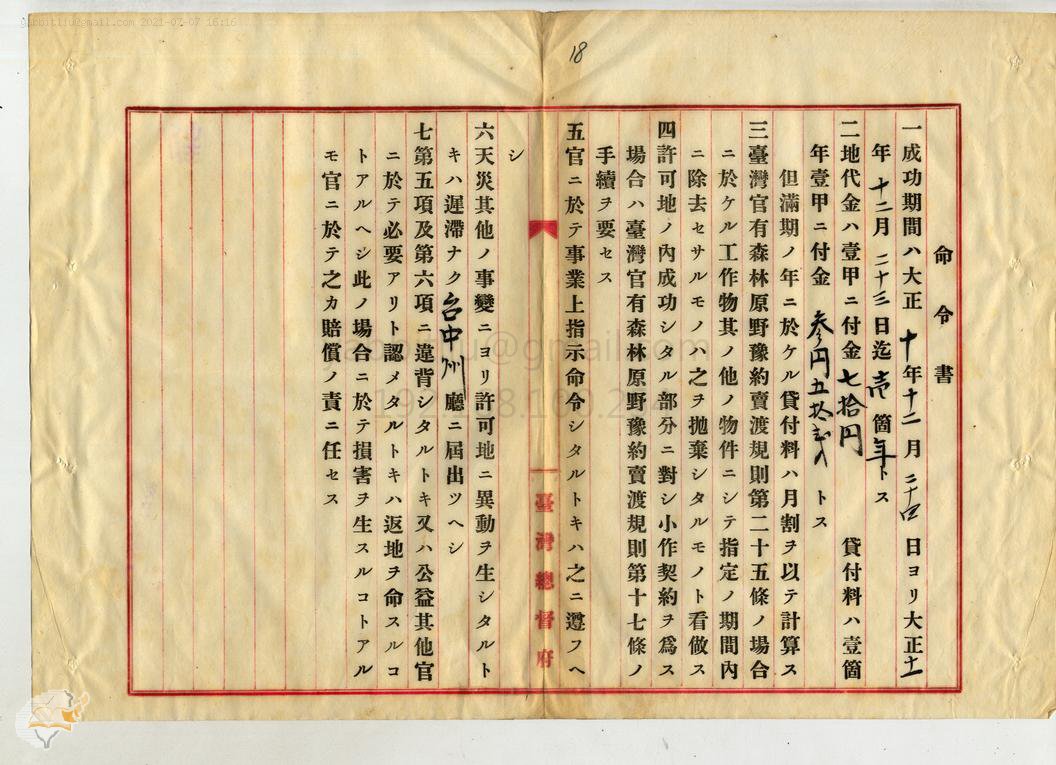 gabbitliu@gmail.com 2021-07-07 16:16
18
命令書
一成功期間ハ大正十年十二月二十四日ヨリ大正十一
年十二月二十三日迄壱箇年トス
二地代金ハ壹甲ニ付金七拾円貸付料ハ壹箇
年壹甲ニ付金参円五拾銭トス
但滿期ノ年ニ於ケル貸付料ハ月割ヲ以テ計算ス
三臺灣官有森林原野豫約賣渡規則第二十五條ノ場合
ニ於ケル工作物其ノ他ノ物件ニシテ指定ノ期間內
ニ除去セサルモノハ之ヲ拋棄シタルモノト看做ス
四許可地ノ內成功シタル部分ニ對シ小作契約ヲ爲ス
場合ハ臺灣官有森林原野豫約賣渡規則第十七條ノ
手續ヲ要セス
五官ニ於テ事業上指示命令シタルトキハ之ニ遵フヘ
臺灣總督府
シ
六天災其他ノ事變ニヨリ許可地ニ異動ヲ生シタルト
キハ遲滯ナク台中州廳ニ屆出ツヘシ
七第五項及第六項ニ違背シタルトキ又ハ公益其他官
ニ於テ必要アリト認メタルトキハ返地ヲ命スルコ
トアルヘシ此ノ場合ニ於テ損害ヲ生スルコトアル
モ官ニ於テ之カ賠償ノ責ニ任セス